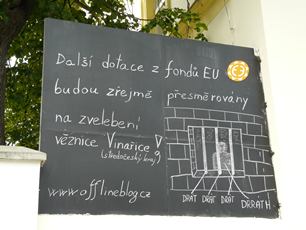 Další dotace z fondů EU
budou zřejmě přesměrovány
na zvelebení
věznice Vinařice
(středočeský kraj)
www.offlineblog.cz
DRÁT DRÁT DRÁT DRRÁTH